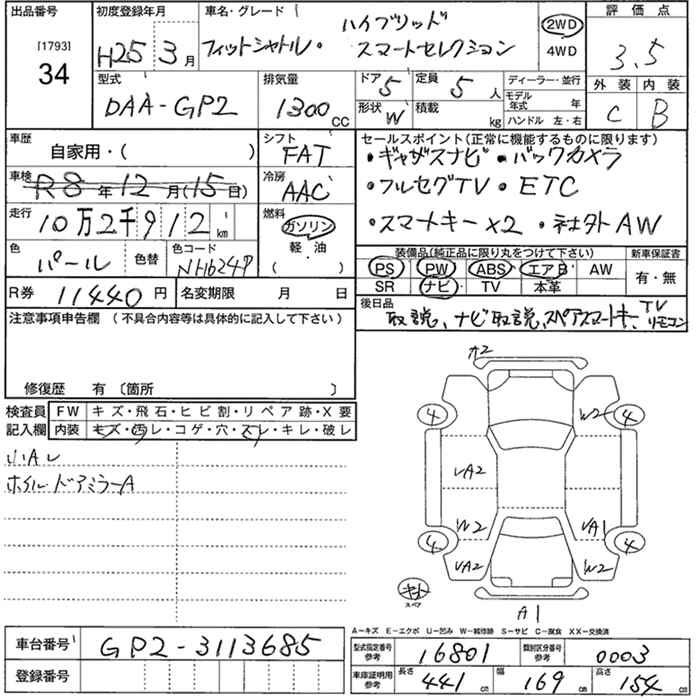 出品番号 初度登録年月 車名・グレード
[1793]
34
H25 3月
ハイブリッド
フィットシャトル・ スマートセレクション
2WD
4WD
評価点
3.5
型式 排気量 ドア 定員 ディーラー・並行
DAA-GP2 1300CC 5 5人
モデル年式 年
形状 W 積載 kg ハンドル 左・右
外装 内装
C B
車歴 自家用・( )
シフト FAT
車検 R8年12月(15日)
冷房 AAC
走行 10万2千912km
燃料 ガソリン
軽・油
( )
色 パール 色替 色コード NH624P
R券 11440円 名変期限 月 日
セールスポイント(正常に機能するものに限ります)
・ギャザズナビ・バックカメラ
・フルセグTV・ETC
・スマートキー×2・社外AW
装備品(純正品に限り丸をつけて下さい) 新車保証書
PS PW ABS エアB AW
SR ナビ TV 本革
有・無
後日品
取説、ナビ取説、スペアスマートキー、TVリモコン
注意事項申告欄(不具合内容等は具体的に記入して下さい)
修復歴 有〔箇所 〕
検査員記入欄
FW キズ・飛石・ヒビ割・リペア跡・X要
内装 キズ・汚レ・コゲ・穴・スレ・キレ・破レ
小Aレ
ホイル・ドアミラーA
A2
4 W2 4
UA2
W2 UA1
4 UA2 W2 4
スペア
A1
A-キズ E-エクボ U-凹み W-補修跡 S-サビ C-腐食 XX-交換済
車台番号 GP2-3113685
登録番号
型式指定番号 参考 16801 類別区分番号 参考 0003
車庫証明用 参考 長さ 441cm 幅 169cm 高さ 154cm